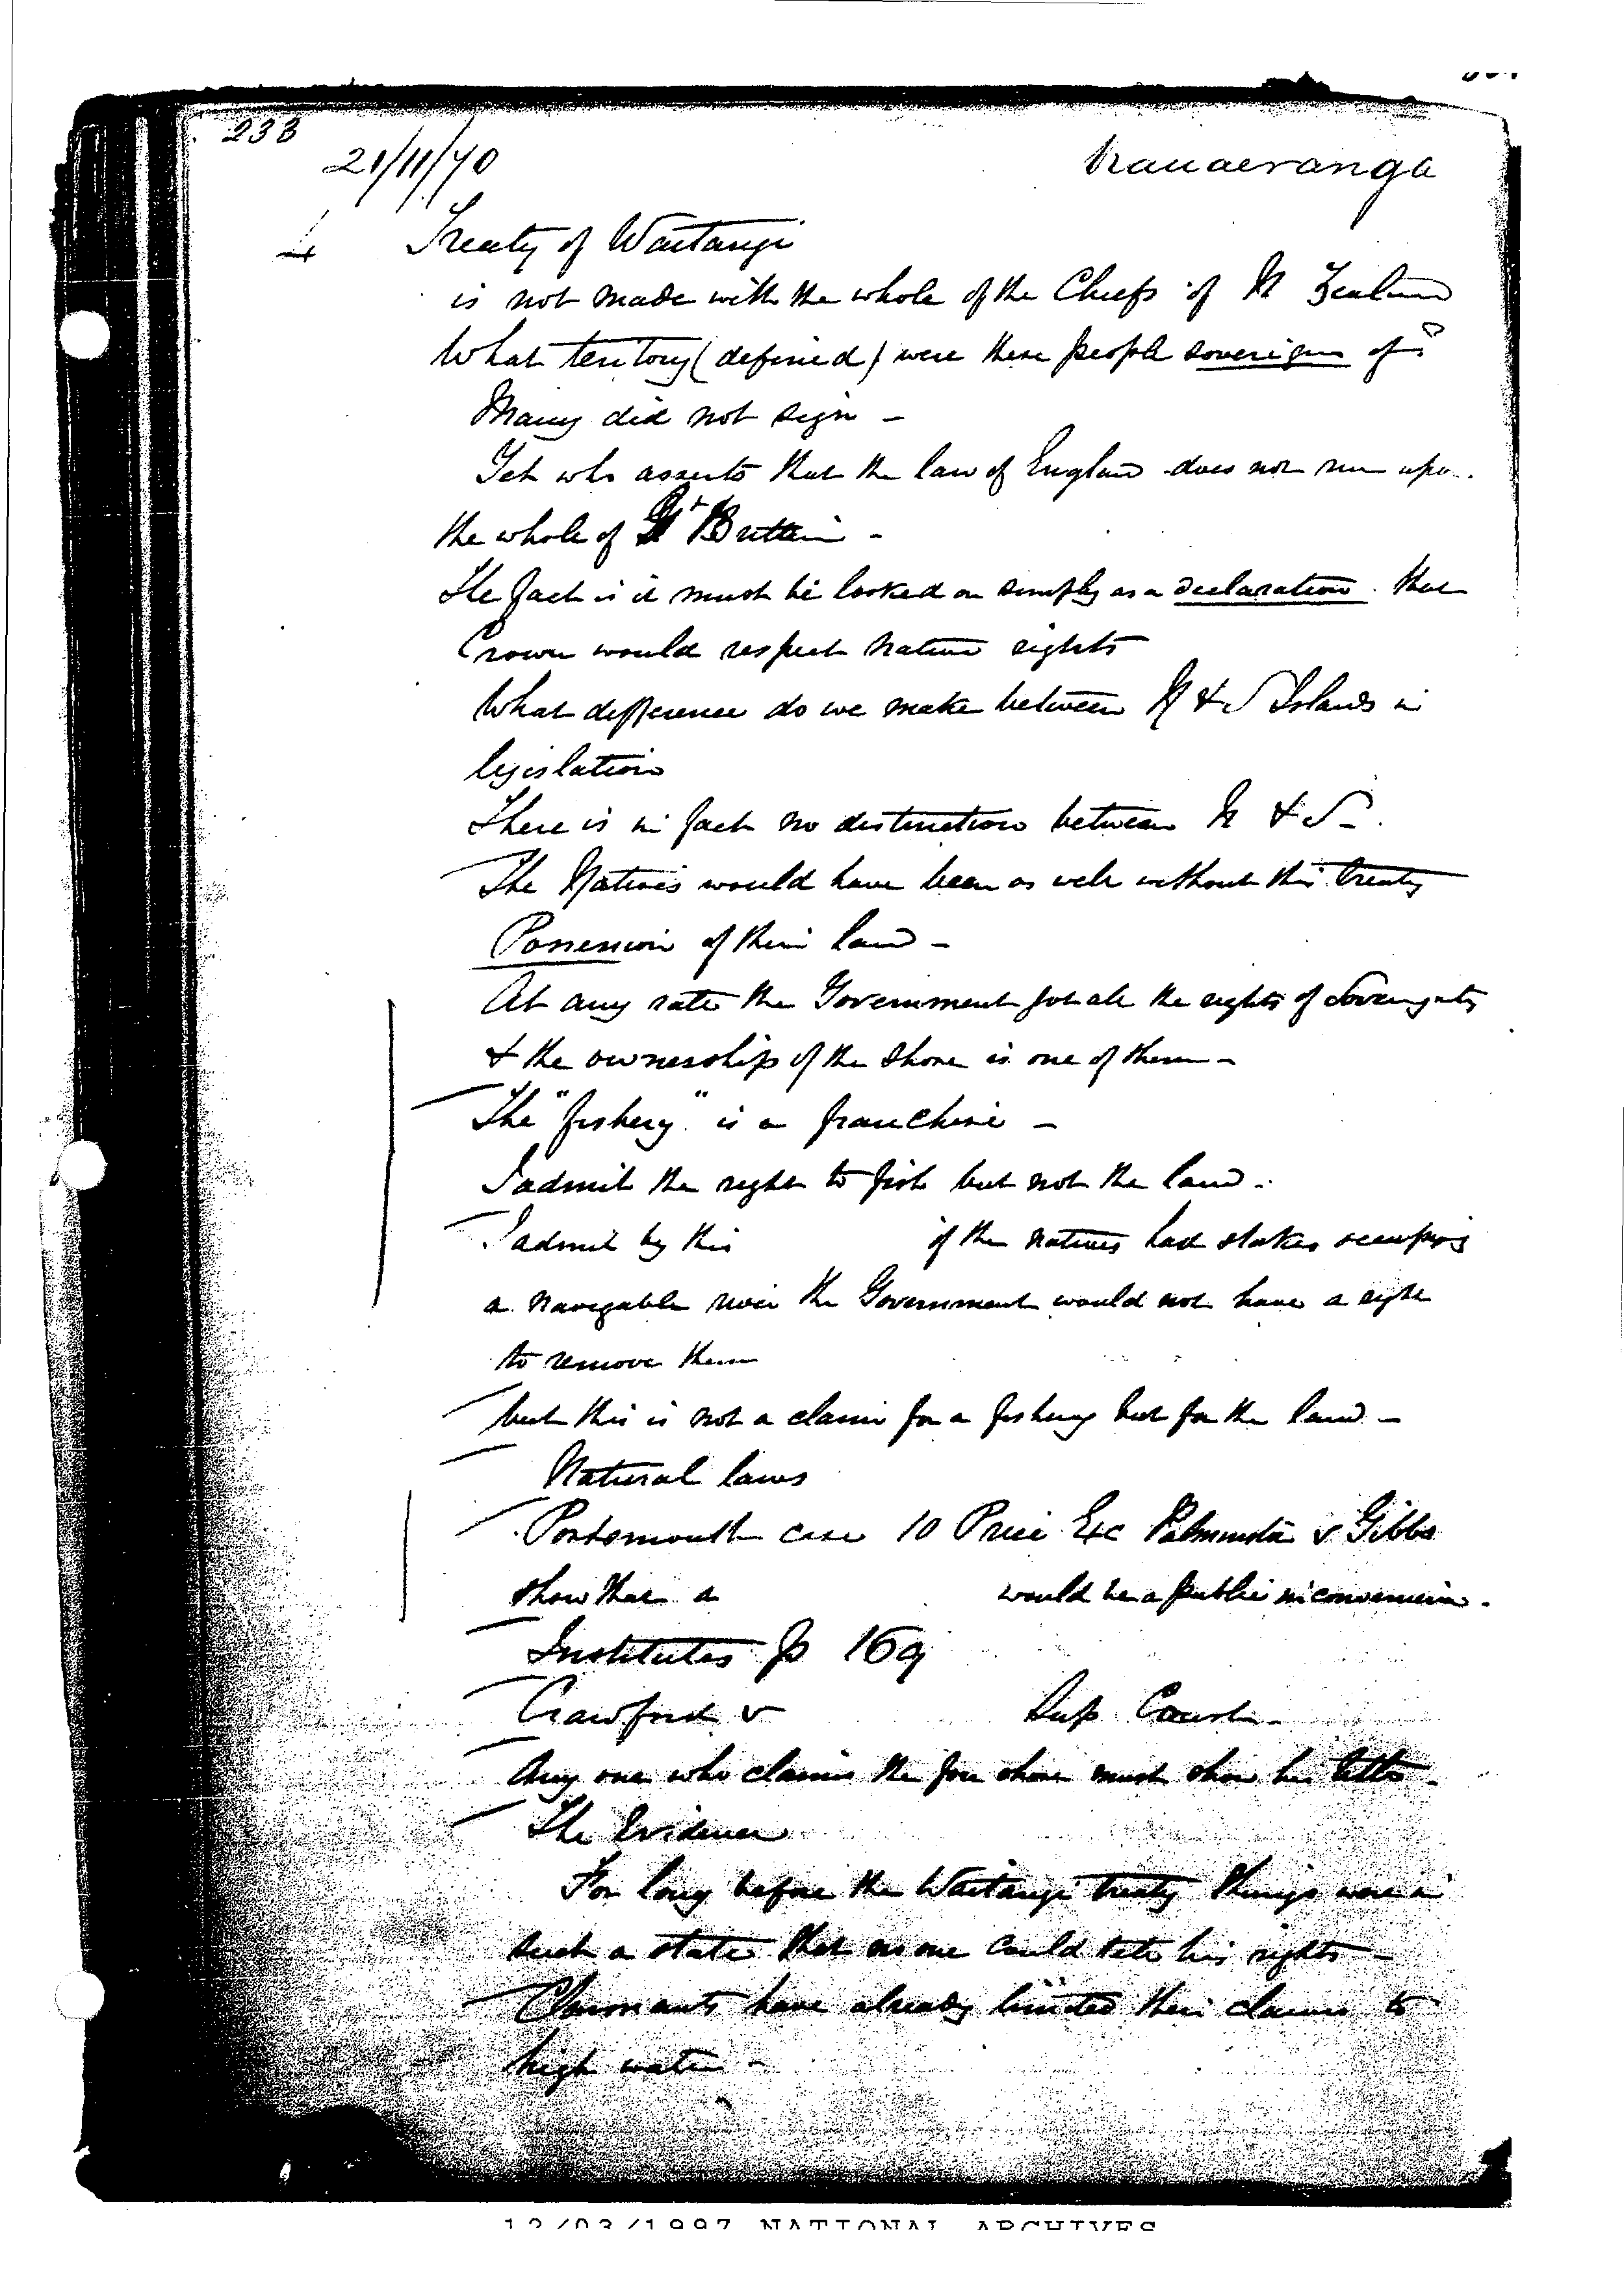 233
21/11/70
Kauaeranga
4 Treaty of Waitangi
is not made with the whole of the Chiefs of N Zealand
What teritory (defined) were these people soverigns of?
Many did not sign -
Yet who asserts that the law of England does not run upon
the whole of Gt Brittain -
The fact is it must be looked on simply as a declaration that
Crown would respect native rights
What difference do we make between N & S Islands in
legislation
There is in fact no distinction between N & S -
The Natives would have been as well without this treaty
Possession of their land -
At any rate the Government got all the rights of Sovereignty
& the ownership of the shore is one of them -
The "fishery" is a franchise -
I admit the right to fish but not the land -
I admit by this if the natives had stakes occupying
a navigable river the Government would not have a right
to remove them
but this is not a claim for a fishery but for the land -
Natural laws
Portsmouth case 10 Price Exc v Gibbs
show that a would be a public inconvenience -
Institutes p 169
Crawford v Sup Court -
Any one who claims the fore shore must show his title -
The Evidence
For long before the Waitangi treaty things were in
such a state that no one could tell his rights -
Claimants have already limited their claims to
high water -
12/03/1997 NATIONAL ARCHIVES